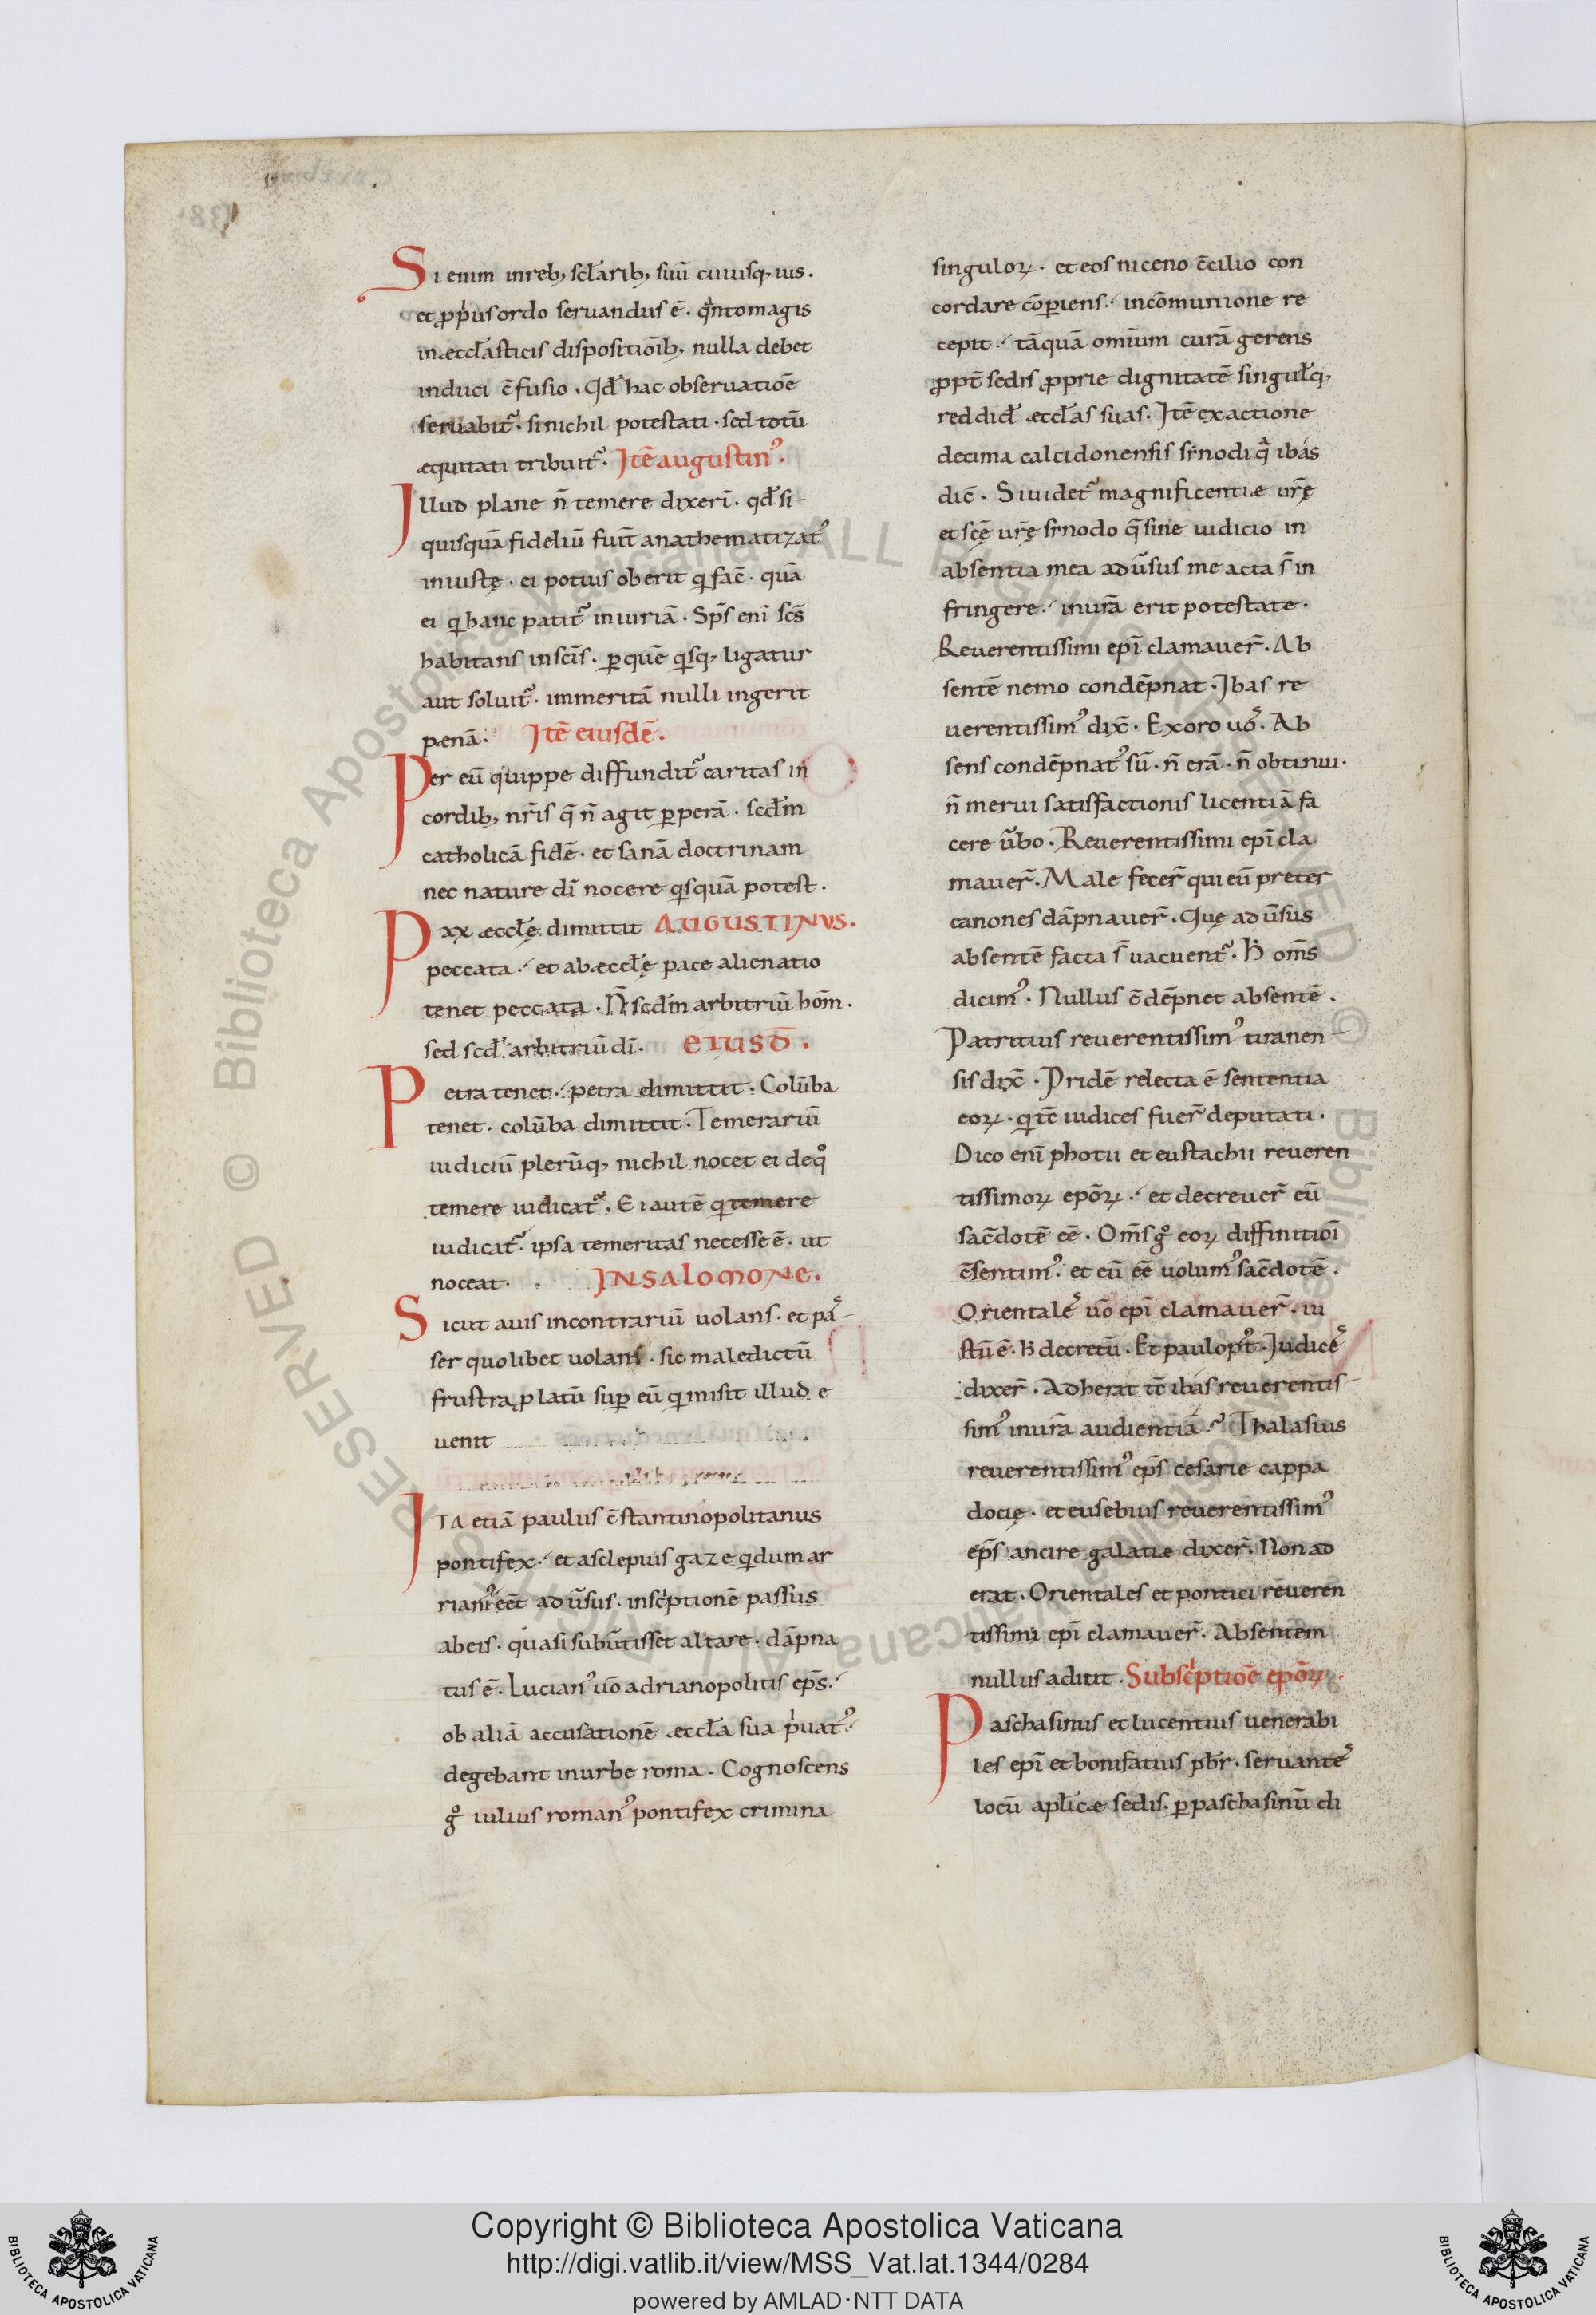 Si enim inreb; sclarib; suū cuiusq; ius.
et ꝓpius ordo seruandus ē. qntomagis
inæccłasticis dispositiōib; nulla debet
induci c̄fusio. Qđ hac obseruatiōe
seruabit᷑. sinichil potestati. sed totū
æquitati tribuit᷑. Itē augustin᾽.
Illud plane n̄ temere dixeri. qđ si-
quisquā fideliū fuit anathematizat᾽
iniustę. ei potius oberit q̇ fac̄. quā
ei q̇ hanc patit᷑ iniuriā. Sp̄s eni sc̄s
habitans insc̄is. ꝑ quē q̇sq; ligatur
aut soluit᷑. immeritā nulli ingerit
pænā. Itē eiusdē.
Per eū quippe diffundit᷑ caritas in
cordib; nr̄is q̄ n̄ agit ꝑperā. scđm
catholicā fidē. et sanā doctrinam
nec nature dī nocere q̇squā potest.
Pax æccłę dimittit AUGUSTINVS.
peccata. et ab æccłę pace alienatio
tenet peccata. N̄ scđm arbitriū hom̄.
sed scđ arbitriū dī. EIUSD̄.
Petra tenet. petra dimittit. Colūba
tenet. colūba dimittit. Temerariū
iudiciū plerūq; nichil nocet ei deq̊
temere iudicat᷑. Ei autē q̇ temere
iudicat᷑. ipsa temeritas necesse ē. ut
noceat. INSALOMONE.
Sicut auis incontrariū uolans. et pas-
ser quolibet uolans. sic maledictū
frustra ꝓlatū suꝑ eū q̇ misit illud e
uenit
Ita etiā paulus c̄stantinopolitanus
pontifex. et asclepius gaze q̇dum ar
rian᾽ eēt adūsus. inscptionē passus
abeis. quasi subūtisset altare. dāpna
tus ē. Lucian᾽ uō adrianopolitis ep̄s.
ob aliā accusationē æccła sua p̍uat᾽.
degebant inurbe roma. Cognoscens
g̊ iulius roman᾽ pontifex crimina
singuloꝝ. et eos niceno c̄cilio con
cordare cōꝑiens. incōmunione re
cepit. tāquā omium curā gerens
ꝓpt̄ sedis ꝓprie dignitatē singulꝗ;
reddid᷑ æccłas suas. Itē exactione
decima calcidonensis sinodi q̄ ibas
dic̄. Si uidet᷑ magnificentiæ ur̄ę
et sc̄ę ur̄ę sinodo q̄ sine iudicio in
absentia mea adūsus me acta s̄ in
fringere. inur̄a erit potestate.
Reuerentissimi epī clamauer̄. Ab
sentē nemo condēpnat. Ibas re
uerentissim᾽ dix̄. Exoro uos. Ab
sens condēpnat᾽ sū. n̄ erā. n̄ obtinui.
n̄ merui satisfactionis licentiā fa
cere ūbo. Reuerentissimi epī cla
mauer̄. Male fecer̄ qui eū preter
canones dāpnauer̄. Quę adūsus
absentē facta s̄ uacuent᷑. H̍ om̄s
dicim᾽. Nullus c̄dēpnet absentē.
Patritius reuerentissim᾽ tiranen-
sis dix̄. Pridē relecta ē sententia
eoꝝ. q̇ tc̄ iudices fuer̄ deputati.
Dico enī photii et eustachii reueren
tissimoꝝ epōꝝ. et decreuer̄ eū
sac̄dotē eē. Om̄s g̊ eoꝝ diffinitiōi
c̄sentim᾽. et eū eē uolum᾽ sac̄dotē.
Orientales uō epī clamauer̄. iu
stū ē. h̍ decretū. Et paulo pt̄. Iudices
dixer̄. Adherat tc̄ ibas reuerentis-
sim᾽ inur̄a audientiā. Thalasius
reuerentissim᾽ ep̄s cesarie cappa
docię. et eusebius reuerentissim᾽
ep̄s ancire galatiæ dixer̄. Non ad
erat. Orientales et pontici reueren
tissimi epī clamauer̄. Absentem
nullus aditit. Subscptiōe epōꝝ.
Paschasinus et lucentius uenerabi
les epī et bonifatius pbr̄. seruantes
locū apłicæ sedis. ꝑ paschasinū di
Copyright © Biblioteca Apostolica Vaticana
http://digi.vatlib.it/view/MSS_Vat.lat.1344/0284
powered by AMLAD·NTT DATA
BIBLIOTECA APOSTOLICA VATICANA
BIBLIOTECA APOSTOLICA VATICANA